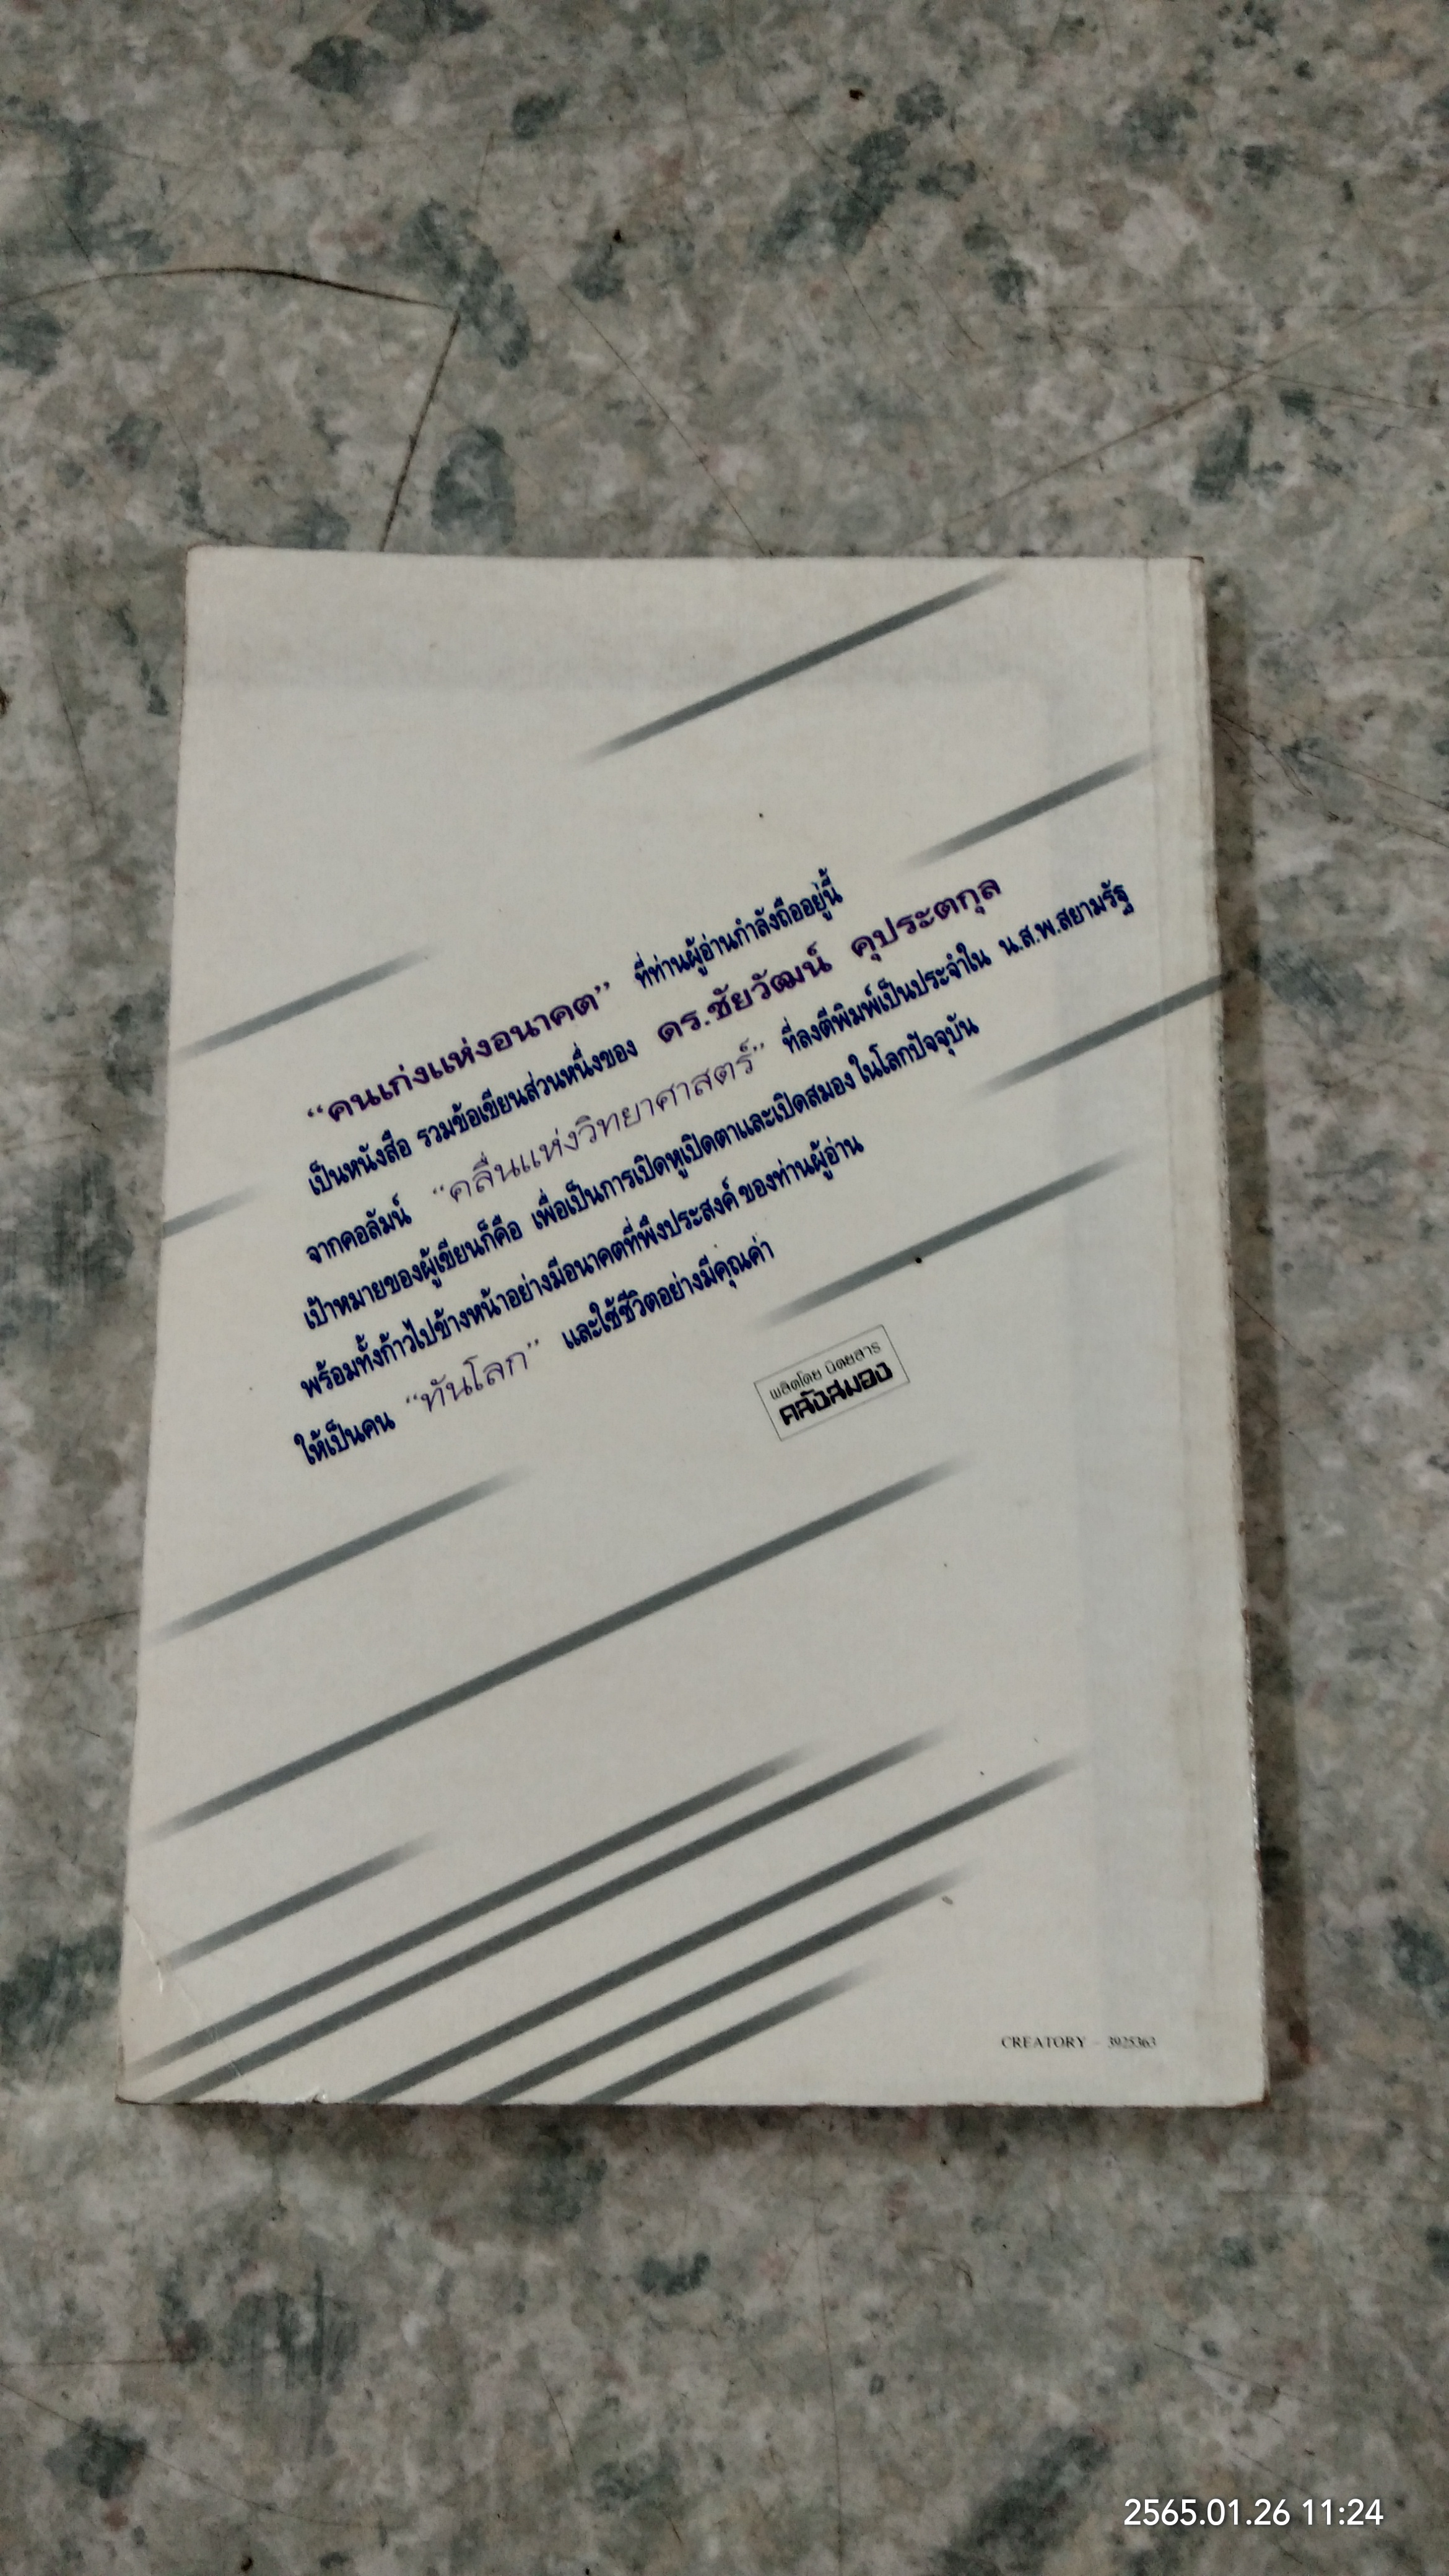 “คนเก่งแห่งอนาคต” ที่ท่านผู้อ่านกำลังถืออยู่นี้
เป็นหนังสือ รวมข้อเขียนส่วนหนึ่งของ ดร.ชัยวัฒน์ คุประตกุล
จากคอลัมน์ “คลื่นแห่งวิทยาศาสตร์” ที่ลงตีพิมพ์เป็นประจำใน น.ส.พ.สยามรัฐ
เป้าหมายของผู้เขียนก็คือ เพื่อเป็นการเปิดหูเปิดตาและเปิดสมอง ในโลกปัจจุบัน
พร้อมทั้งก้าวไปข้างหน้าอย่างมีอนาคตที่พึงประสงค์ ของท่านผู้อ่าน
ให้เป็นคน “ทันโลก” และใช้ชีวิตอย่างมีคุณค่า
ผลิตโดย นิตยสาร
คลังสมอง
CREATORY - 3925363
2565.01.26 11:24